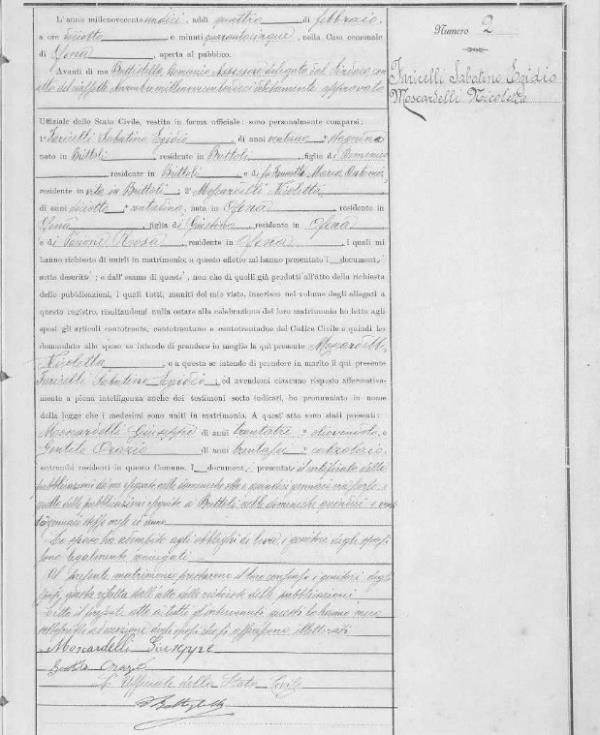 Numero 2
Faricelli Sabatino Egidio
Moscardelli Nicoletta
L'anno millenovecento undici, addì quattro di febbraio,
a ore diciotto e minuti quarantacinque, nella Casa comunale
di Ofena, aperta al pubblico.
Avanti di me Assessore delegato dal Sindaco con
atto del approvato
Uffiziale dello Stato Civile, vestito in forma ufficiale; sono personalmente comparsi:
1° Faricelli Sabatino Egidio, di anni
nato in Brittoli, residente in Brittoli, figlio di Domenico
, residente in Brittoli e di fu Maria Antonia
residente in vita in Brittoli; 2° Moscardelli Nicoletta
di anni diciotto, contadina, nata in Ofena, residente in
Ofena, figlia di Giustino, residente in Ofena
e di Rosa, residente in Ofena, i quali mi
hanno richiesto di unirli in matrimonio; a questo effetto mi hanno presentato i document
sotto descritti; e dall'esame di questi, non che di quelli già prodotti all'atto della richiesta
delle pubblicazioni, i quali tutti, muniti del mio visto, inserisco nel volume degli allegati a
questo registro, risultandomi nulla ostare alla celebrazione del loro matrimonio ho letto agli
sposi gli articoli centotrenta, centotrentuno e centotrentadue del Codice Civile e quindi ho
domandato allo sposo se intende di prendere in moglie la qui presente Moscardelli
Nicoletta, e a questa se intende di prendere in marito il qui presente
Faricelli Sabatino Egidio; ed avendomi ciascuno risposto affermativamente
a piena intelligenza anche dei testimoni sotto indicati, ho pronunziato in nome
della legge che i medesimi sono uniti in matrimonio. A quest'atto sono stati presenti:
Moscardelli Giuseppe di anni trentatre, e
Gentile Orazio di anni trentasei,
entrambi residenti in questo Comune. I document presentati il certificato delle
pubblicazioni da me eseguite nelle domeniche otto e quindici gennaio e
quello delle pubblicazioni eseguite a Brittoli nelle domeniche quindici e
gennaio
Lo sposo ha adempito agli obblighi di leva, i genitori degli sposi
sono legalmente coniugati.
Al presente matrimonio prestarono il loro consenso i genitori degli
sposi, dall'atto della richiesta delle pubblicazioni
Letto il presente atto a tutti gl'intervenuti questi lo hanno meco
sottoscritto ad eccezione degli sposi illetterati
Moscardelli Giuseppe
Gentile Orazio
L'Ufficiale dello Stato Civile